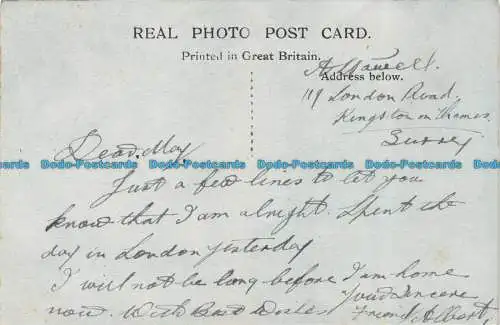 REAL PHOTO POST CARD.
Printed in Great Britain.
Address below.
119 London Road.
Kingston on Thames.
Surrey
Dear May
Just a few lines to let you
know that I am alright. Spent the
day in London yesterday
I will not be long before I am home
now. With Best Wishes
Your Sincere
Friend Albert,
Dodo-Postcards Dodo-Postcards Dodo-Postcards Dodo-Postcards Dodo-Postcards